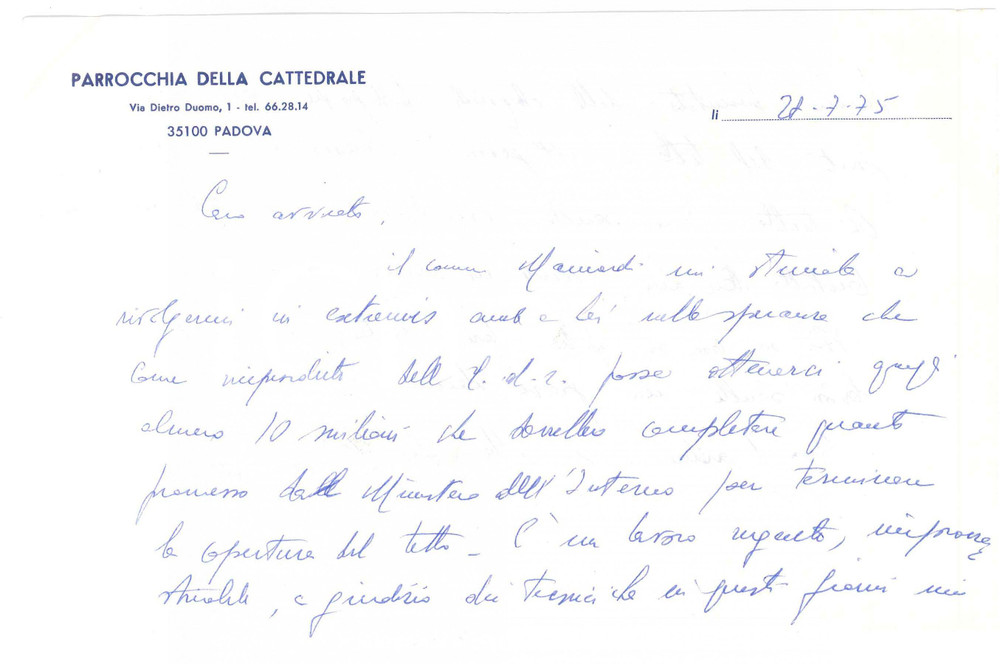 PARROCCHIA DELLA CATTEDRALE
Via Dietro Duomo, 1 - tel. 66.28.14
35100 PADOVA
li 28-7-75
Caro avvocato,
il comm. Mainardi mi stimola a
rivolgermi in extremis anche a Lei nella speranza che
come
dell' possa ottenerci quegli
almeno 10 milioni che dovrebbero completare quanto
promesso dal Ministero dell'Interno per terminare
la copertura del tetto - È un lavoro urgente, improcra
stinabile, a giudizio dei tecnici che in questi giorni mi